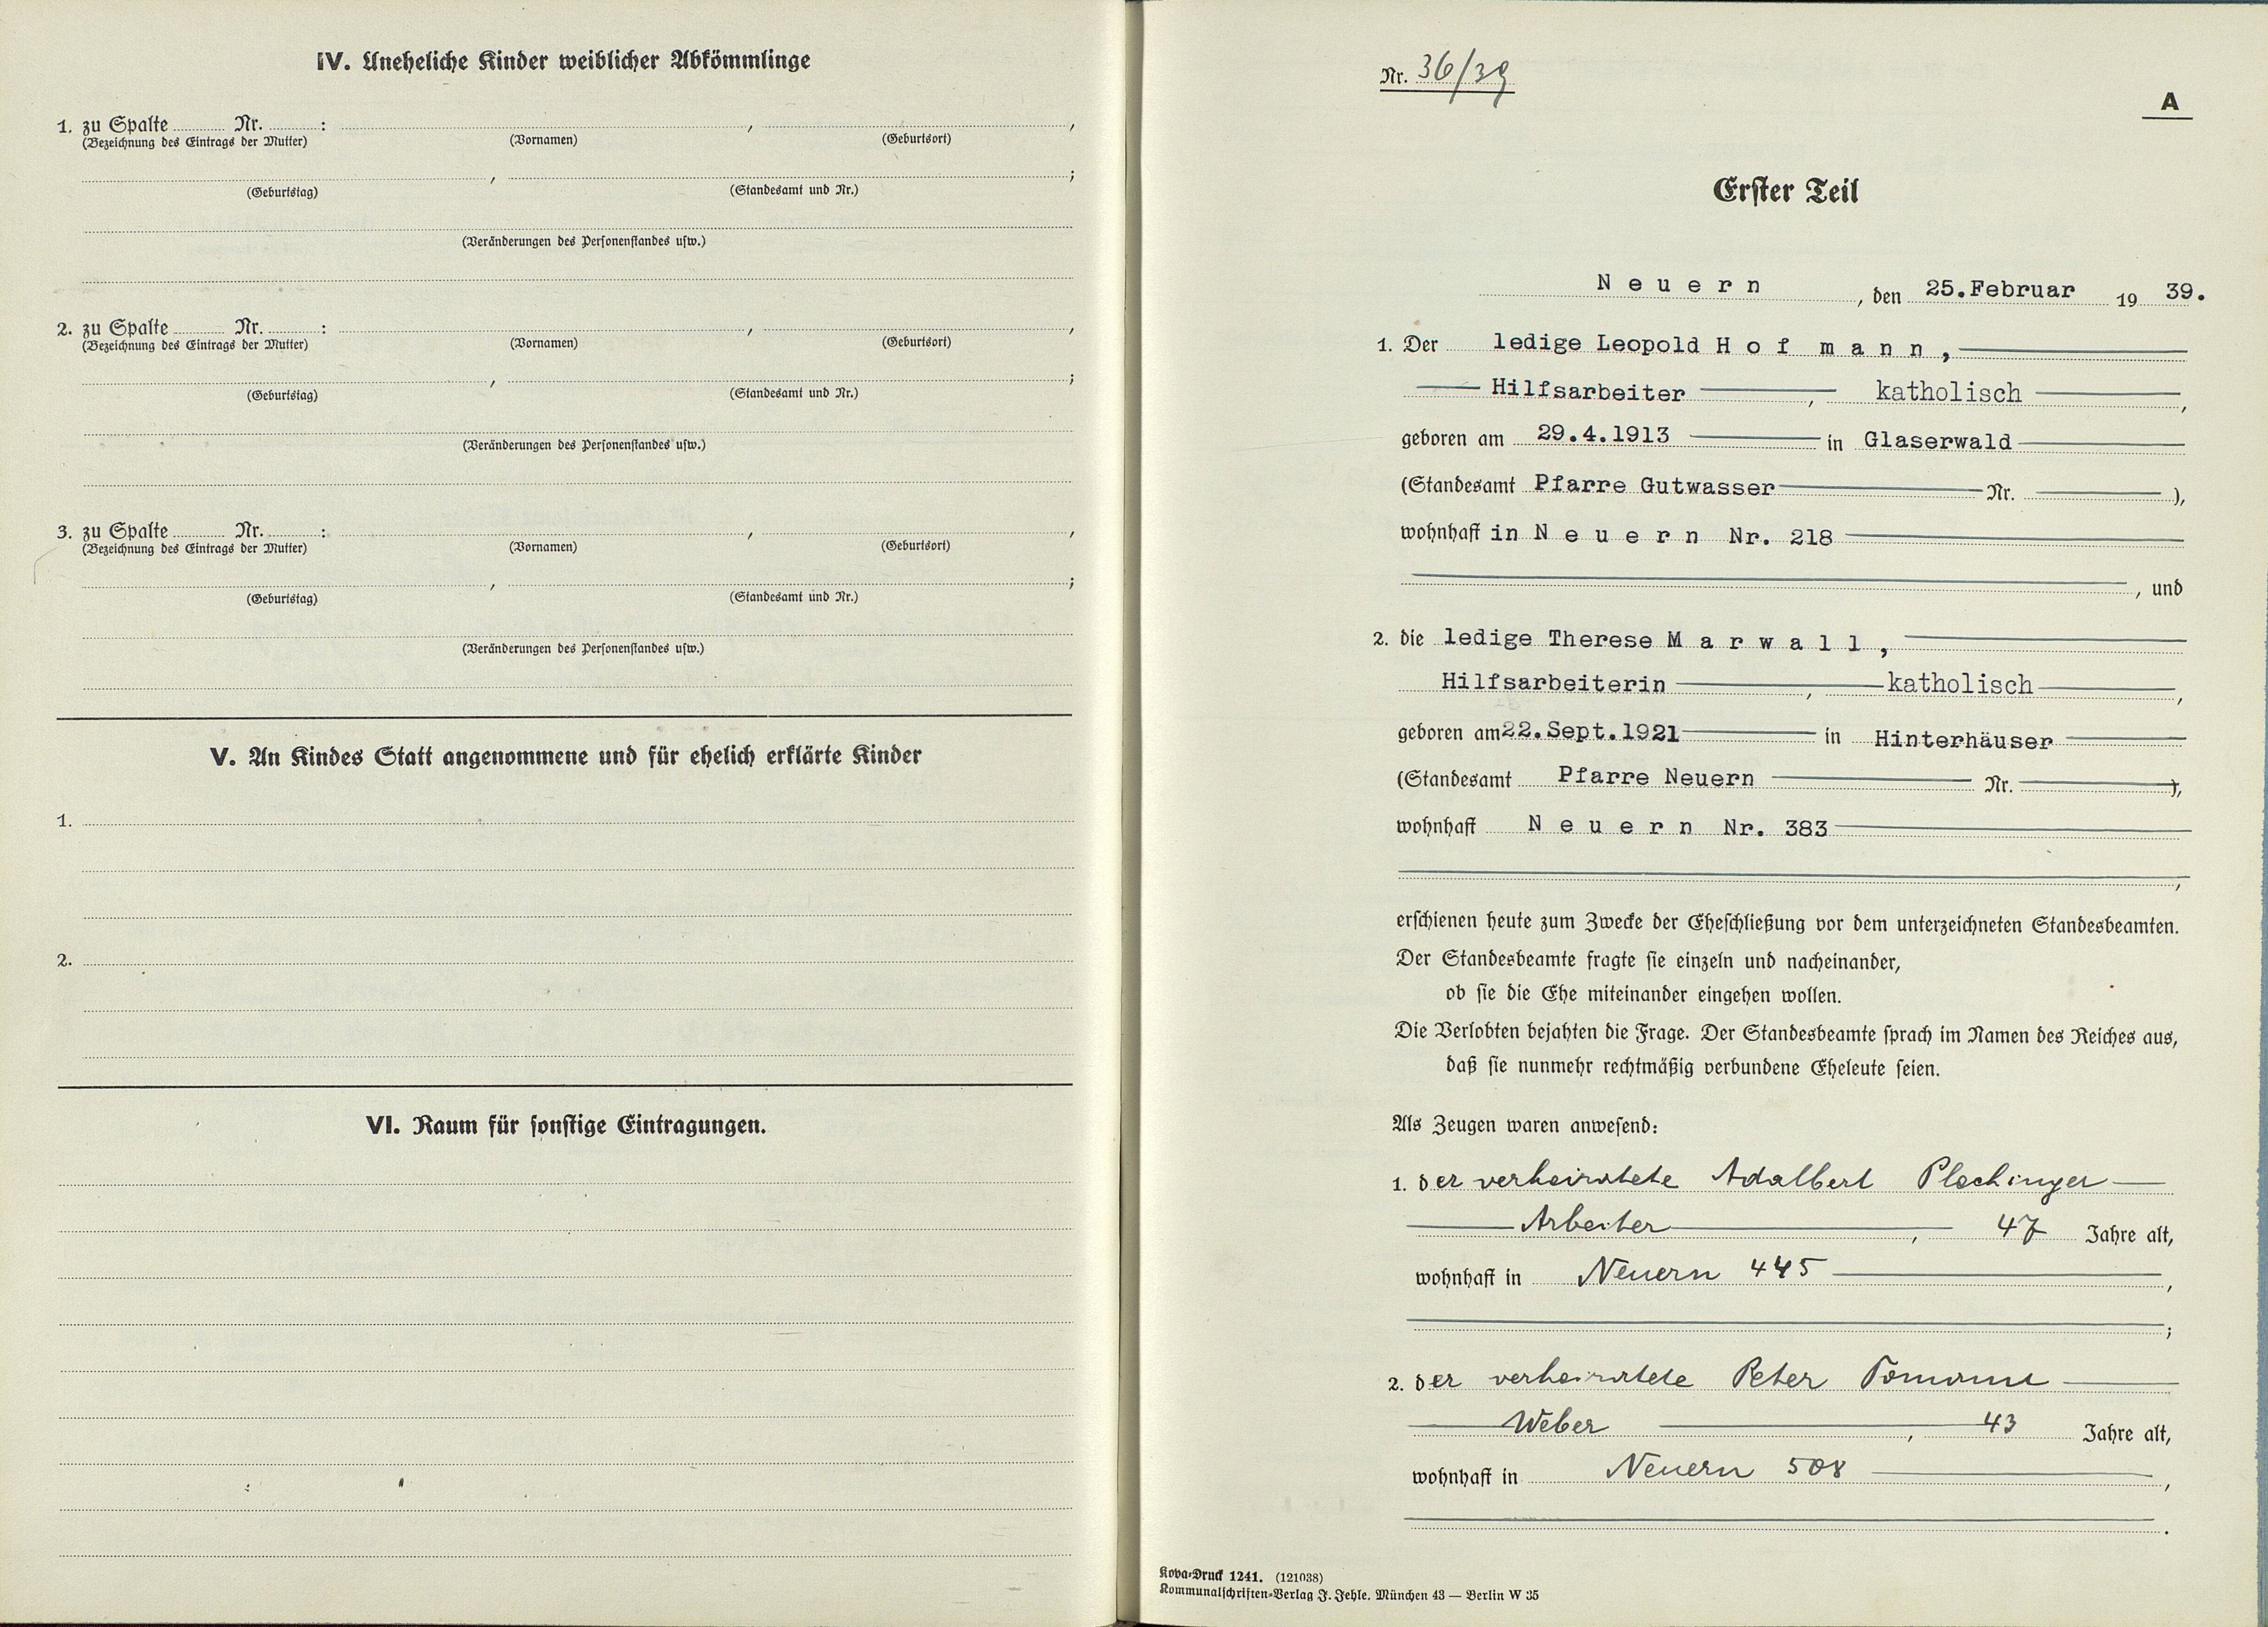 IV. Uneheliche Kinder weiblicher Abkömmlinge
1. zu Spalte ........ Nr. ........ : ........ , ........ ,
(Bezeichnung des Eintrags der Mutter) (Vornamen) (Geburtsort)
........ , ........ ;
(Geburtstag) (Standesamt und Nr.)
(Veränderungen des Personenstandes usw.)
2. zu Spalte ........ Nr. ........ : ........ , ........ ,
(Bezeichnung des Eintrags der Mutter) (Vornamen) (Geburtsort)
........ , ........ ;
(Geburtstag) (Standesamt und Nr.)
(Veränderungen des Personenstandes usw.)
3. zu Spalte ........ Nr. ........ : ........ , ........ ,
(Bezeichnung des Eintrags der Mutter) (Vornamen) (Geburtsort)
........ , ........ ;
(Geburtstag) (Standesamt und Nr.)
(Veränderungen des Personenstandes usw.)
V. An Kindes Statt angenommene und für ehelich erklärte Kinder
1.
2.
VI. Raum für sonstige Eintragungen.
Nr. 36/39
A
Erster Teil
N e u e r n , den 25.Februar 19 39.
1. Der ledige Leopold H o f m a n n ,
Hilfsarbeiter , katholisch ,
geboren am 29.4.1913 in Glaserwald
(Standesamt Pfarre Gutwasser Nr. ),
wohnhaft in N e u e r n Nr. 218
, und
2. die ledige Therese M a r w a l l ,
Hilfsarbeiterin , katholisch ,
geboren am 22.Sept.1921 in Hinterhäuser
(Standesamt Pfarre Neuern Nr. ),
wohnhaft N e u e r n Nr. 383
,
erschienen heute zum Zwecke der Eheschließung vor dem unterzeichneten Standesbeamten.
Der Standesbeamte fragte sie einzeln und nacheinander,
ob sie die Ehe miteinander eingehen wollen.
Die Verlobten bejahten die Frage. Der Standesbeamte sprach im Namen des Reiches aus,
daß sie nunmehr rechtmäßig verbundene Eheleute seien.
Als Zeugen waren anwesend:
1. der verheiratete Adalbert Plechinger
Arbeiter , 47 Jahre alt,
wohnhaft in Neuern 445 ,
;
2. der verheiratete Peter Tomann
Weber , 43 Jahre alt,
wohnhaft in Neuern 508 ,
.
Kova-Druck 1241. (121038)
Kommunalschriften-Verlag J. Jehle. München 43 — Berlin W 35